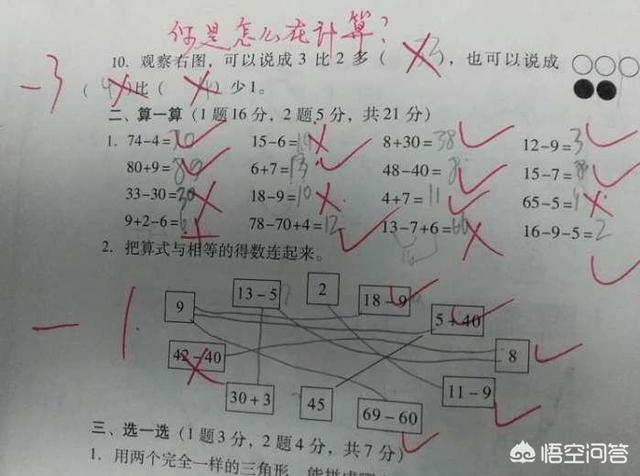 你是怎么在计算?
10. 观察右图,可以说成 3 比 2 多( ),也可以说成
-3 ( )比( )少1。
二、算一算(1题16分,2题5分,共21分)
1. 74-4=70 15-6= 8+30=38 12-9=3
80+9=89 6+7=13 48-40=8 15-7=8
33-30=30 18-9=10 4+7=11 65-5=
9+2-6= 78-70+4=12 13-7+6=66 16-9-5=2
2. 把算式与相等的得数连起来。
9 13-5 2 18-9 5+40
-1
42-40 8
30+3 45 69-60 11-9
三、选一选(1题3分,2题4分,共7分)
1. 用两个完全一样的三角形,能拼成
悟空问答